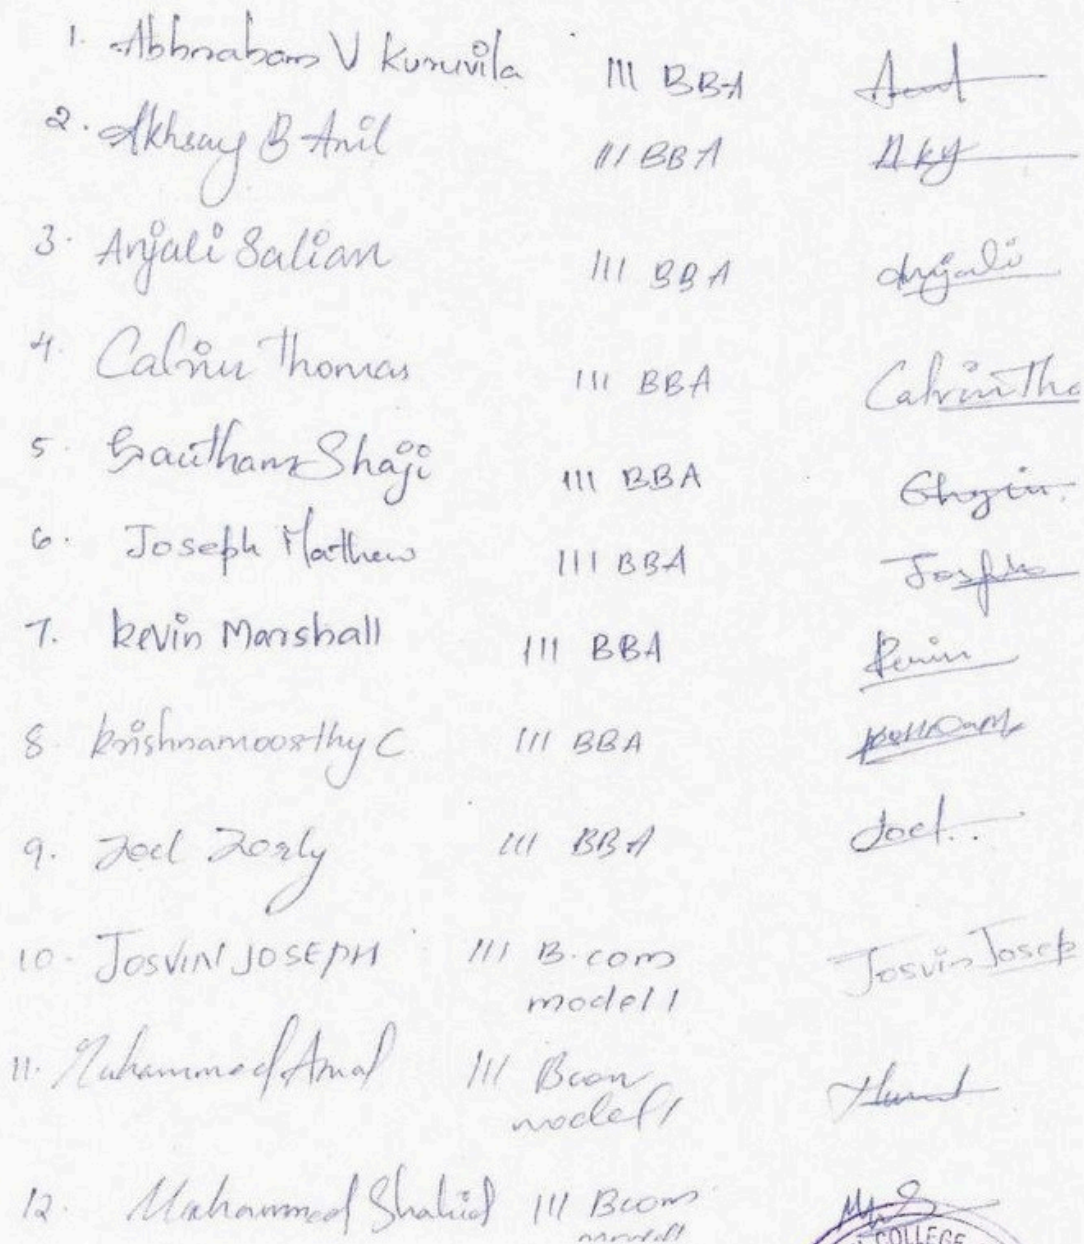 1. Abhraham V Kuruvila III BBA
2. Akhsay B Anil III BBA Aky
3. Anjali Salian III BBA Anjali
4. Calvin Thomas III BBA Calvin Tho
5. Gautham Shaji III BBA
6. Joseph Mathew III BBA Joseph
7. Kevin Marshall III BBA Kevin
8 Krishnamoorthy C III BBA
9. Joel Jorly III BBA Joel..
10. JOSVIN JOSEPH III B.com Josvin Josep
model 1
11. Muhammed Amal III Bcom
model 1
12. Muhammed Shahid III Bcom
model 1
COLLEGE